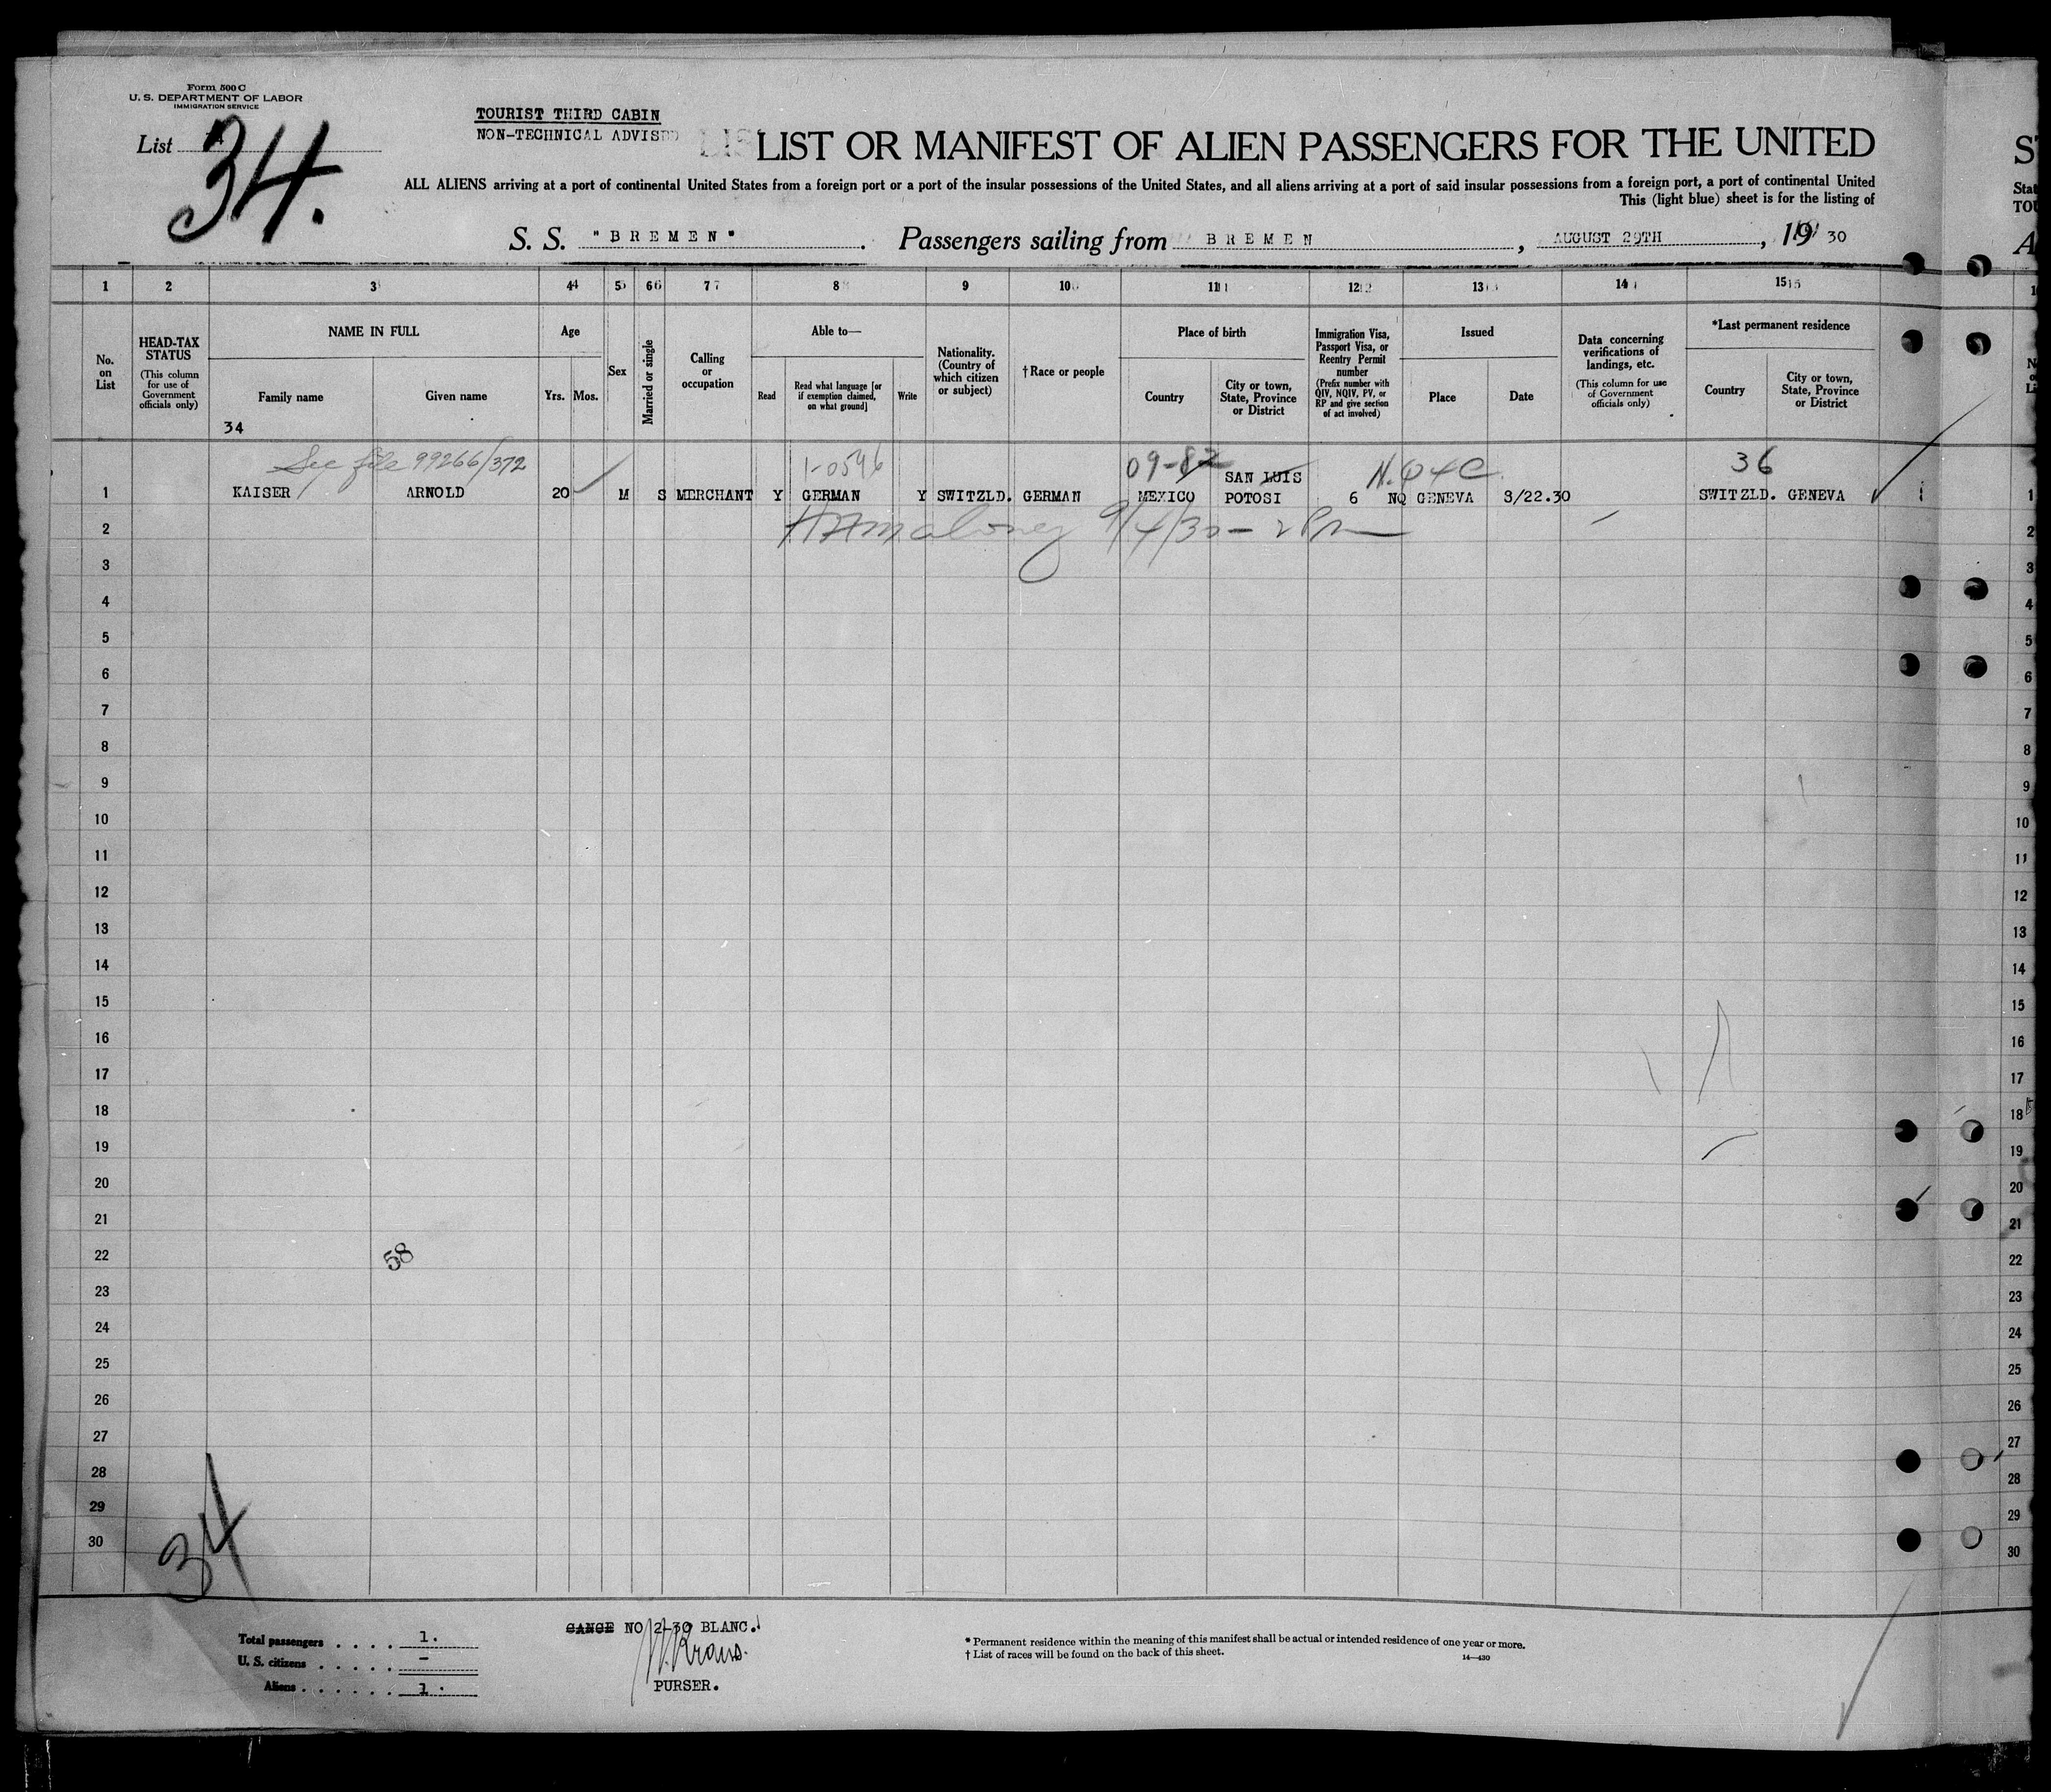 Form 500 C
U. S. DEPARTMENT OF LABOR
IMMIGRATION SERVICE
List 34.
TOURIST THIRD CABIN
NON-TECHNICAL ADVISED
LIST OR MANIFEST OF ALIEN PASSENGERS FOR THE UNITED
ALL ALIENS arriving at a port of continental United States from a foreign port or a port of the insular possessions of the United States, and all aliens arriving at a port of said insular possessions from a foreign port, a port of continental United
This (light blue) sheet is for the listing of
S. S. "BREMEN". Passengers sailing from BREMEN, AUGUST 29TH, 1930
1 2 3 4 5 6 7 8 9 10 11 12 13 14 15
No. on List
HEAD-TAX STATUS (This column for use of Government officials only)
NAME IN FULL
Family name
Given name
34
Age
Yrs. Mos.
Sex
Married or single
Calling or occupation
Able to—
Read
Read what language [or if exemption claimed, on what ground]
Write
Nationality. (Country of which citizen or subject)
†Race or people
Place of birth
Country
City or town, State, Province or District
Immigration Visa, Passport Visa, or Reentry Permit number (Prefix number with QIV, NQIV, PV, or RP and give section of act involved)
Issued
Place
Date
Data concerning verifications of landings, etc. (This column for use of Government officials only)
*Last permanent residence
Country
City or town, State, Province or District
See file 99266/372 1-0546 09-82 36
1 KAISER ARNOLD 20 M S MERCHANT Y GERMAN Y SWITZLD. GERMAN MEXICO SAN LUIS POTOSI 6 NQ GENEVA 3/22.30 SWITZLD. GENEVA 1
2 9/4/30 - 2 Pm 2
3 3
4 4
5 5
6 6
7 7
8 8
9 9
10 10
11 11
12 12
13 13
14 14
15 15
16 16
17 17
18 18
19 19
20 20
21 21
22 58 22
23 23
24 24
25 25
26 26
27 27
28 28
29 29
30 30
34
Total passengers .... 1.
U. S. citizens ..... -
Aliens ...... 1.
NO 2-30 BLANC.
PURSER.
* Permanent residence within the meaning of this manifest shall be actual or intended residence of one year or more.
† List of races will be found on the back of this sheet.
14—430